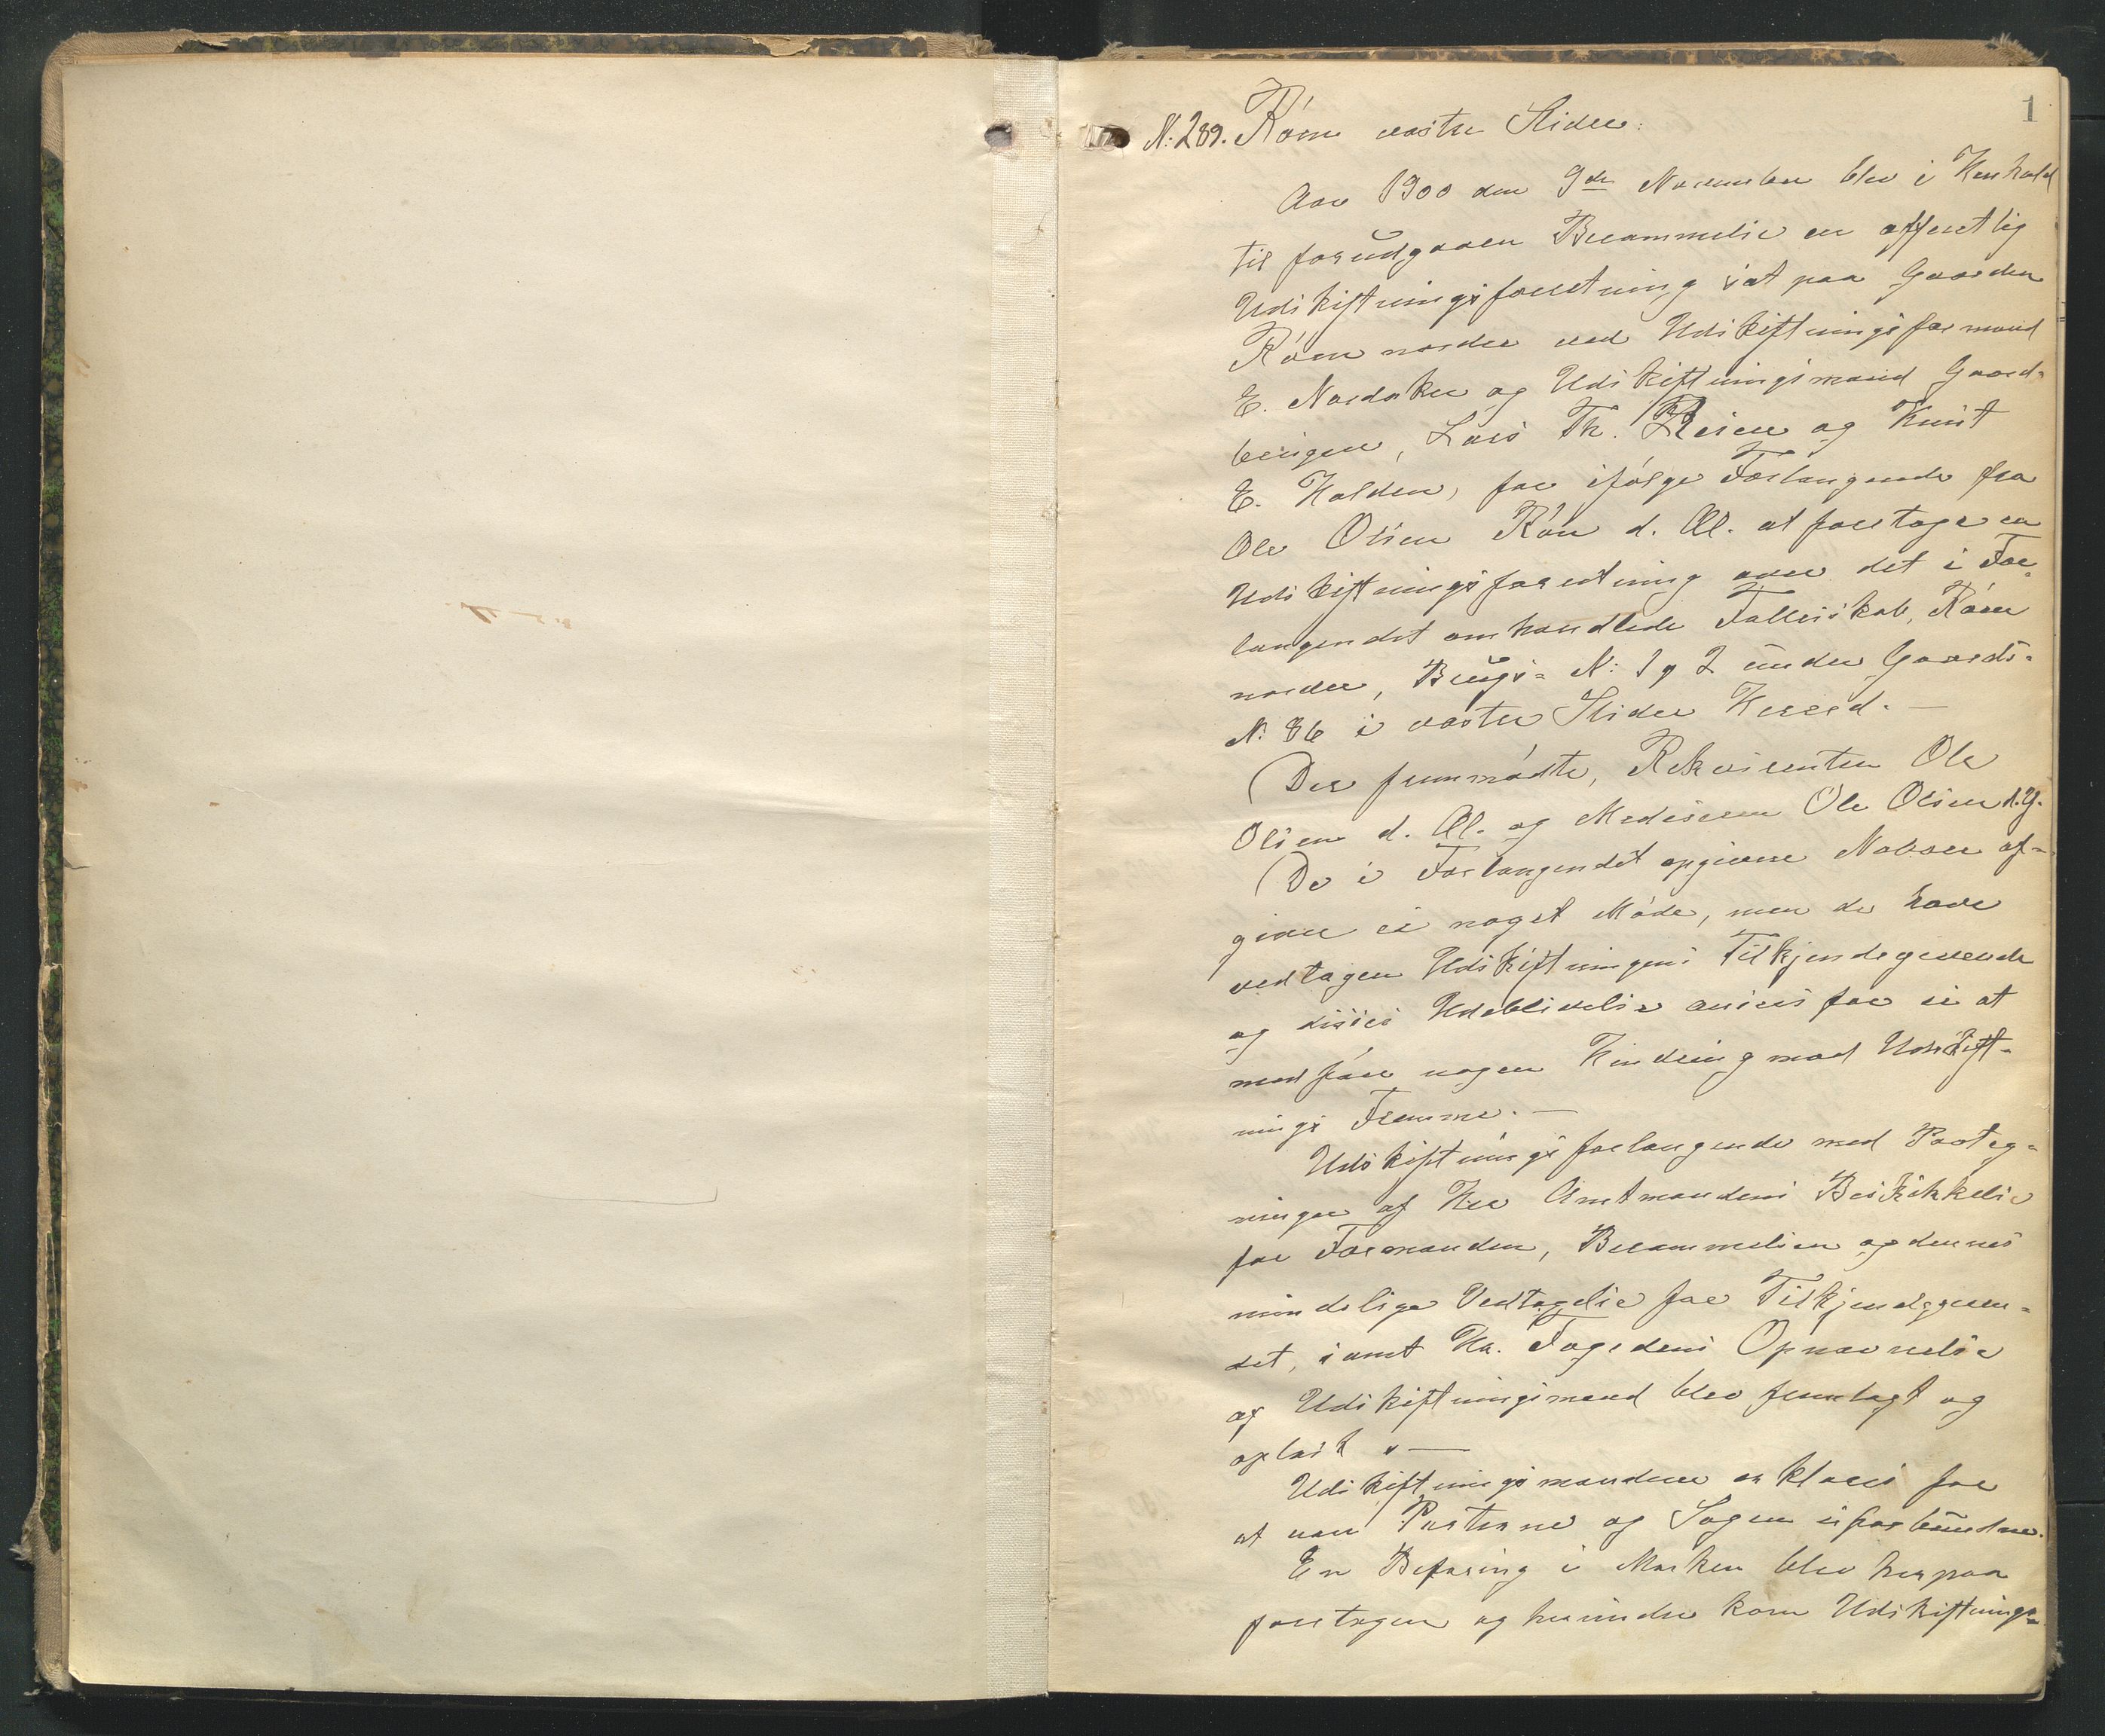 1
N: 289. Røen vestre Slidre:
Aar 1900 den 9de November blev i Henhold
til forudgaaen Berammelse en offentlig
Udskiftningsforretning sat paa Gaarden
Røen nordre ved Udskiftningsformand
E. Nordaker og Udskiftningsmænd Gaard-
brugere, Lars Th. Reien og Knut
E. Halden, for ifølge Forlangende fra
Ole Olsen Røen d. Æl. at foretage en
Udskiftningsforretning over det i For-
langendet omhandlede Fællesskab, Røen
nordre, Brugs- N: 1 og 2 under Gaards-
N: 86 i vestre Slidre Herred. —
Der fremmødte, Rekvirenten Ole
Olsen d. Æl. og Medeieren Ole Olsen d.Y.
De i Forlangendet opgivne Naboer af-
giver ei noget Møde, men de have
vedtagen Udskiftningens Tilkjendegivende
og disses Udeblivelse ansees for ei at
medføre nogen Hindring mod Udskift-
nings Fremme. —
Udskiftningsforlangende med Paateg-
ninger af Her Amtmandens Beskikkelse
for Formanden, Berammelsen og dennes
mindelige Vedtagelse for Tilkjendegiven-
det, samt Hr. Fogedens Opnævnelse
af Udskiftningsmænd blev fremlagt og
oplæst. —
Udskiftningsmændene erklæres for
at være Parterne og Sagen uforbundne.
En Befaring i Marken blev herpaa
foretagen og herunder kom Udskiftnings-